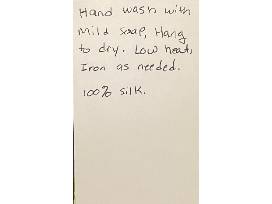 Hand wash with
mild soap, Hang
to dry. Low heat,
Iron as needed.
100% silk.